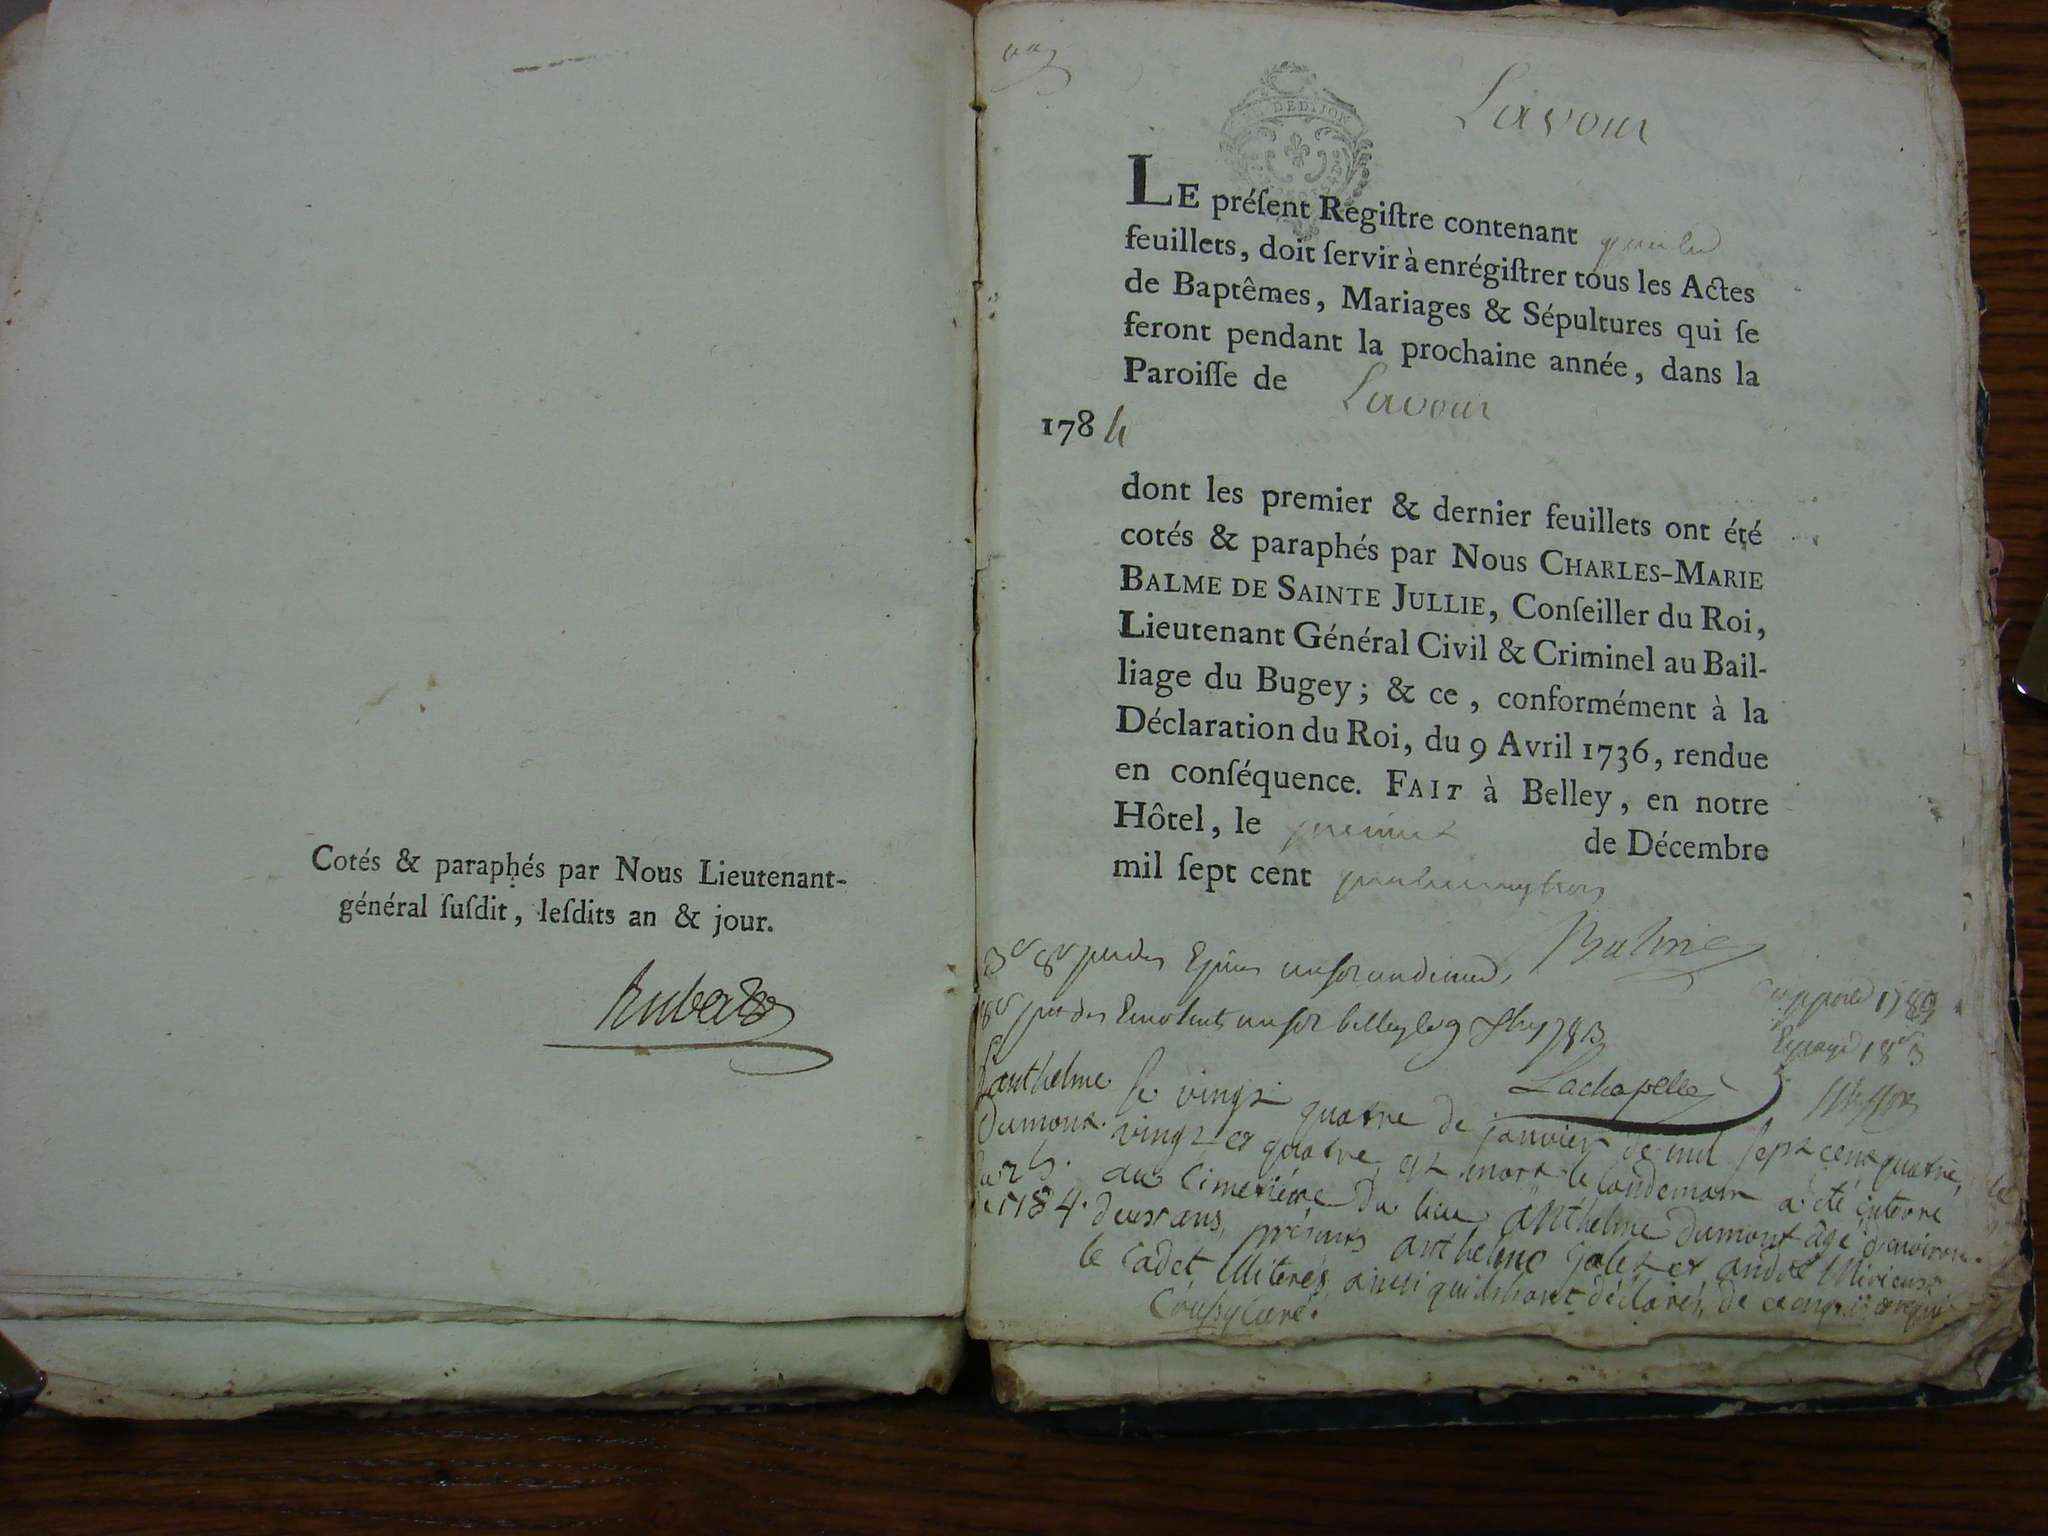 Cotés & paraphés par Nous Lieutenant-
général ſuſdit, leſdits an & jour.
Lavour
DEDIJON
LE préſent Regiſtre contenant quatre
feuillets, doit ſervir à enrégiſtrer tous les Actes
de Baptêmes, Mariages & Sépultures qui ſe
feront pendant la prochaine année, dans la
Paroiſſe de Lavour
1784
dont les premier & dernier feuillets ont été
cotés & paraphés par Nous CHARLES-MARIE
BALME DE SAINTE JULLIE, Conſeiller du Roi,
Lieutenant Général Civil & Criminel au Bail-
liage du Bugey; & ce, conformément à la
Déclaration du Roi, du 9 Avril 1736, rendue
en conſéquence. FAIT à Belley, en notre
Hôtel, le premier de Décembre
mil ſept cent quatrevingt trois
Balme
Lachapelle
anthelme
Dumont.
1784.
le vingt quatre de janvier de mil sept cent quatre
vingt et quatre, est mort le landemain a été interré
au Cimetière du lieu anthelme dumont âgé d'environ
deux ans, présents anthelme Galet et andré
le Cadet, illiterés, ainsi qu'ils l'ont déclarés, de ce enquis et requis
curé.